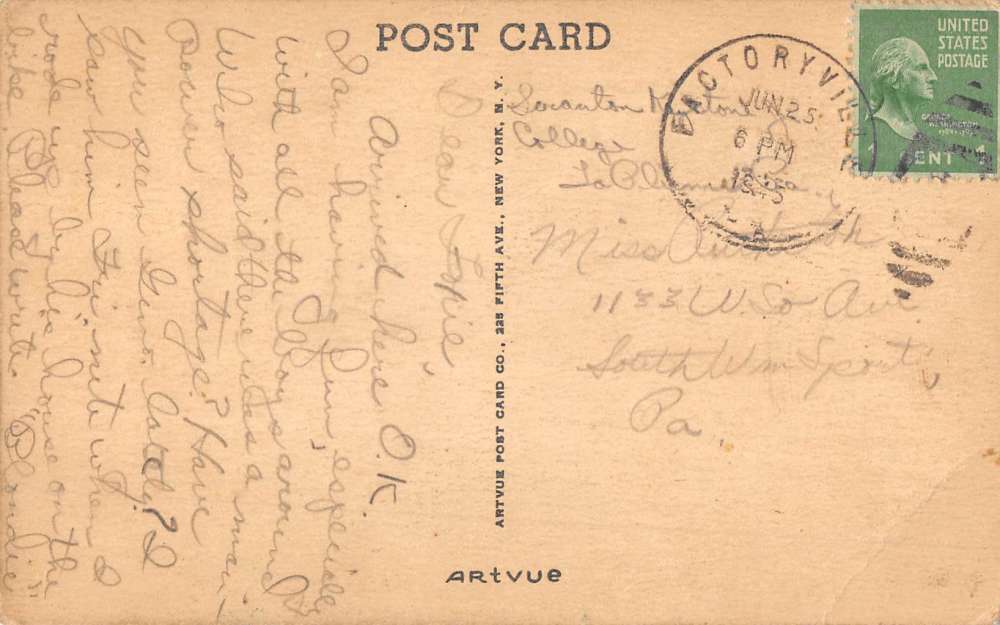 POST CARD
Dear
Arrived here O.K.
I am having fun, especially
with all the Boys around.
Who said there was a man-
power shortage? Have
you seen Gene lately? I
saw him Fri nite when I
rode up by his house on the
bike. Please write. "Blondie"
ARTVUE POST CARD CO., 225 FIFTH AVE., NEW YORK, N. Y.
ARTVUE
Scranton Keystone
College
La Plume, Pa
FACTORYVILLE
JUN 25
6 PM
UNITED
STATES
POSTAGE
1 CENT 1
Miss Ruth
1133 W. So. Ave
South Wmsport,
Pa.